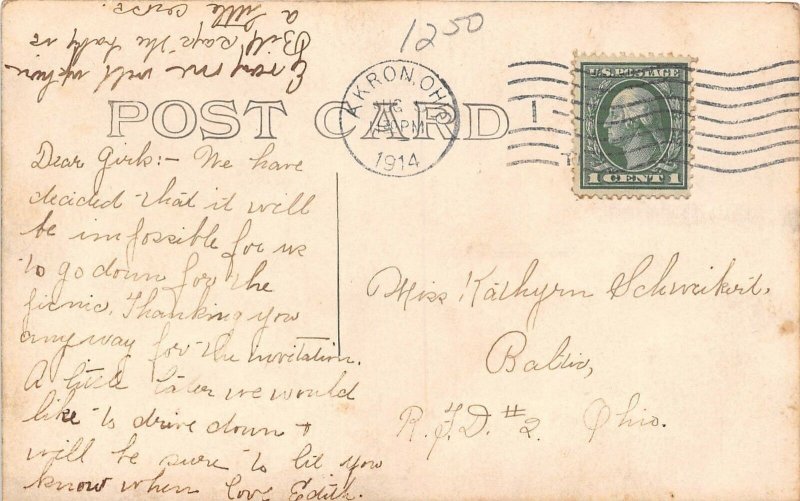 1250
AKRON, OHIO
PM
1914
U.S. POSTAGE
1 CENT 1
POST CARD
Dear Girls:- We have
decided that it will
be impossible for us
to go down for the
picnic. Thanking you
anyway for the invitation.
A little later we would
like to drive down +
will be sure to let you
know when love Edith.
Bill says the baby is
a little
Miss Kathyrn Schweikert,
Baltic,
R.F.D. #2. Ohio.